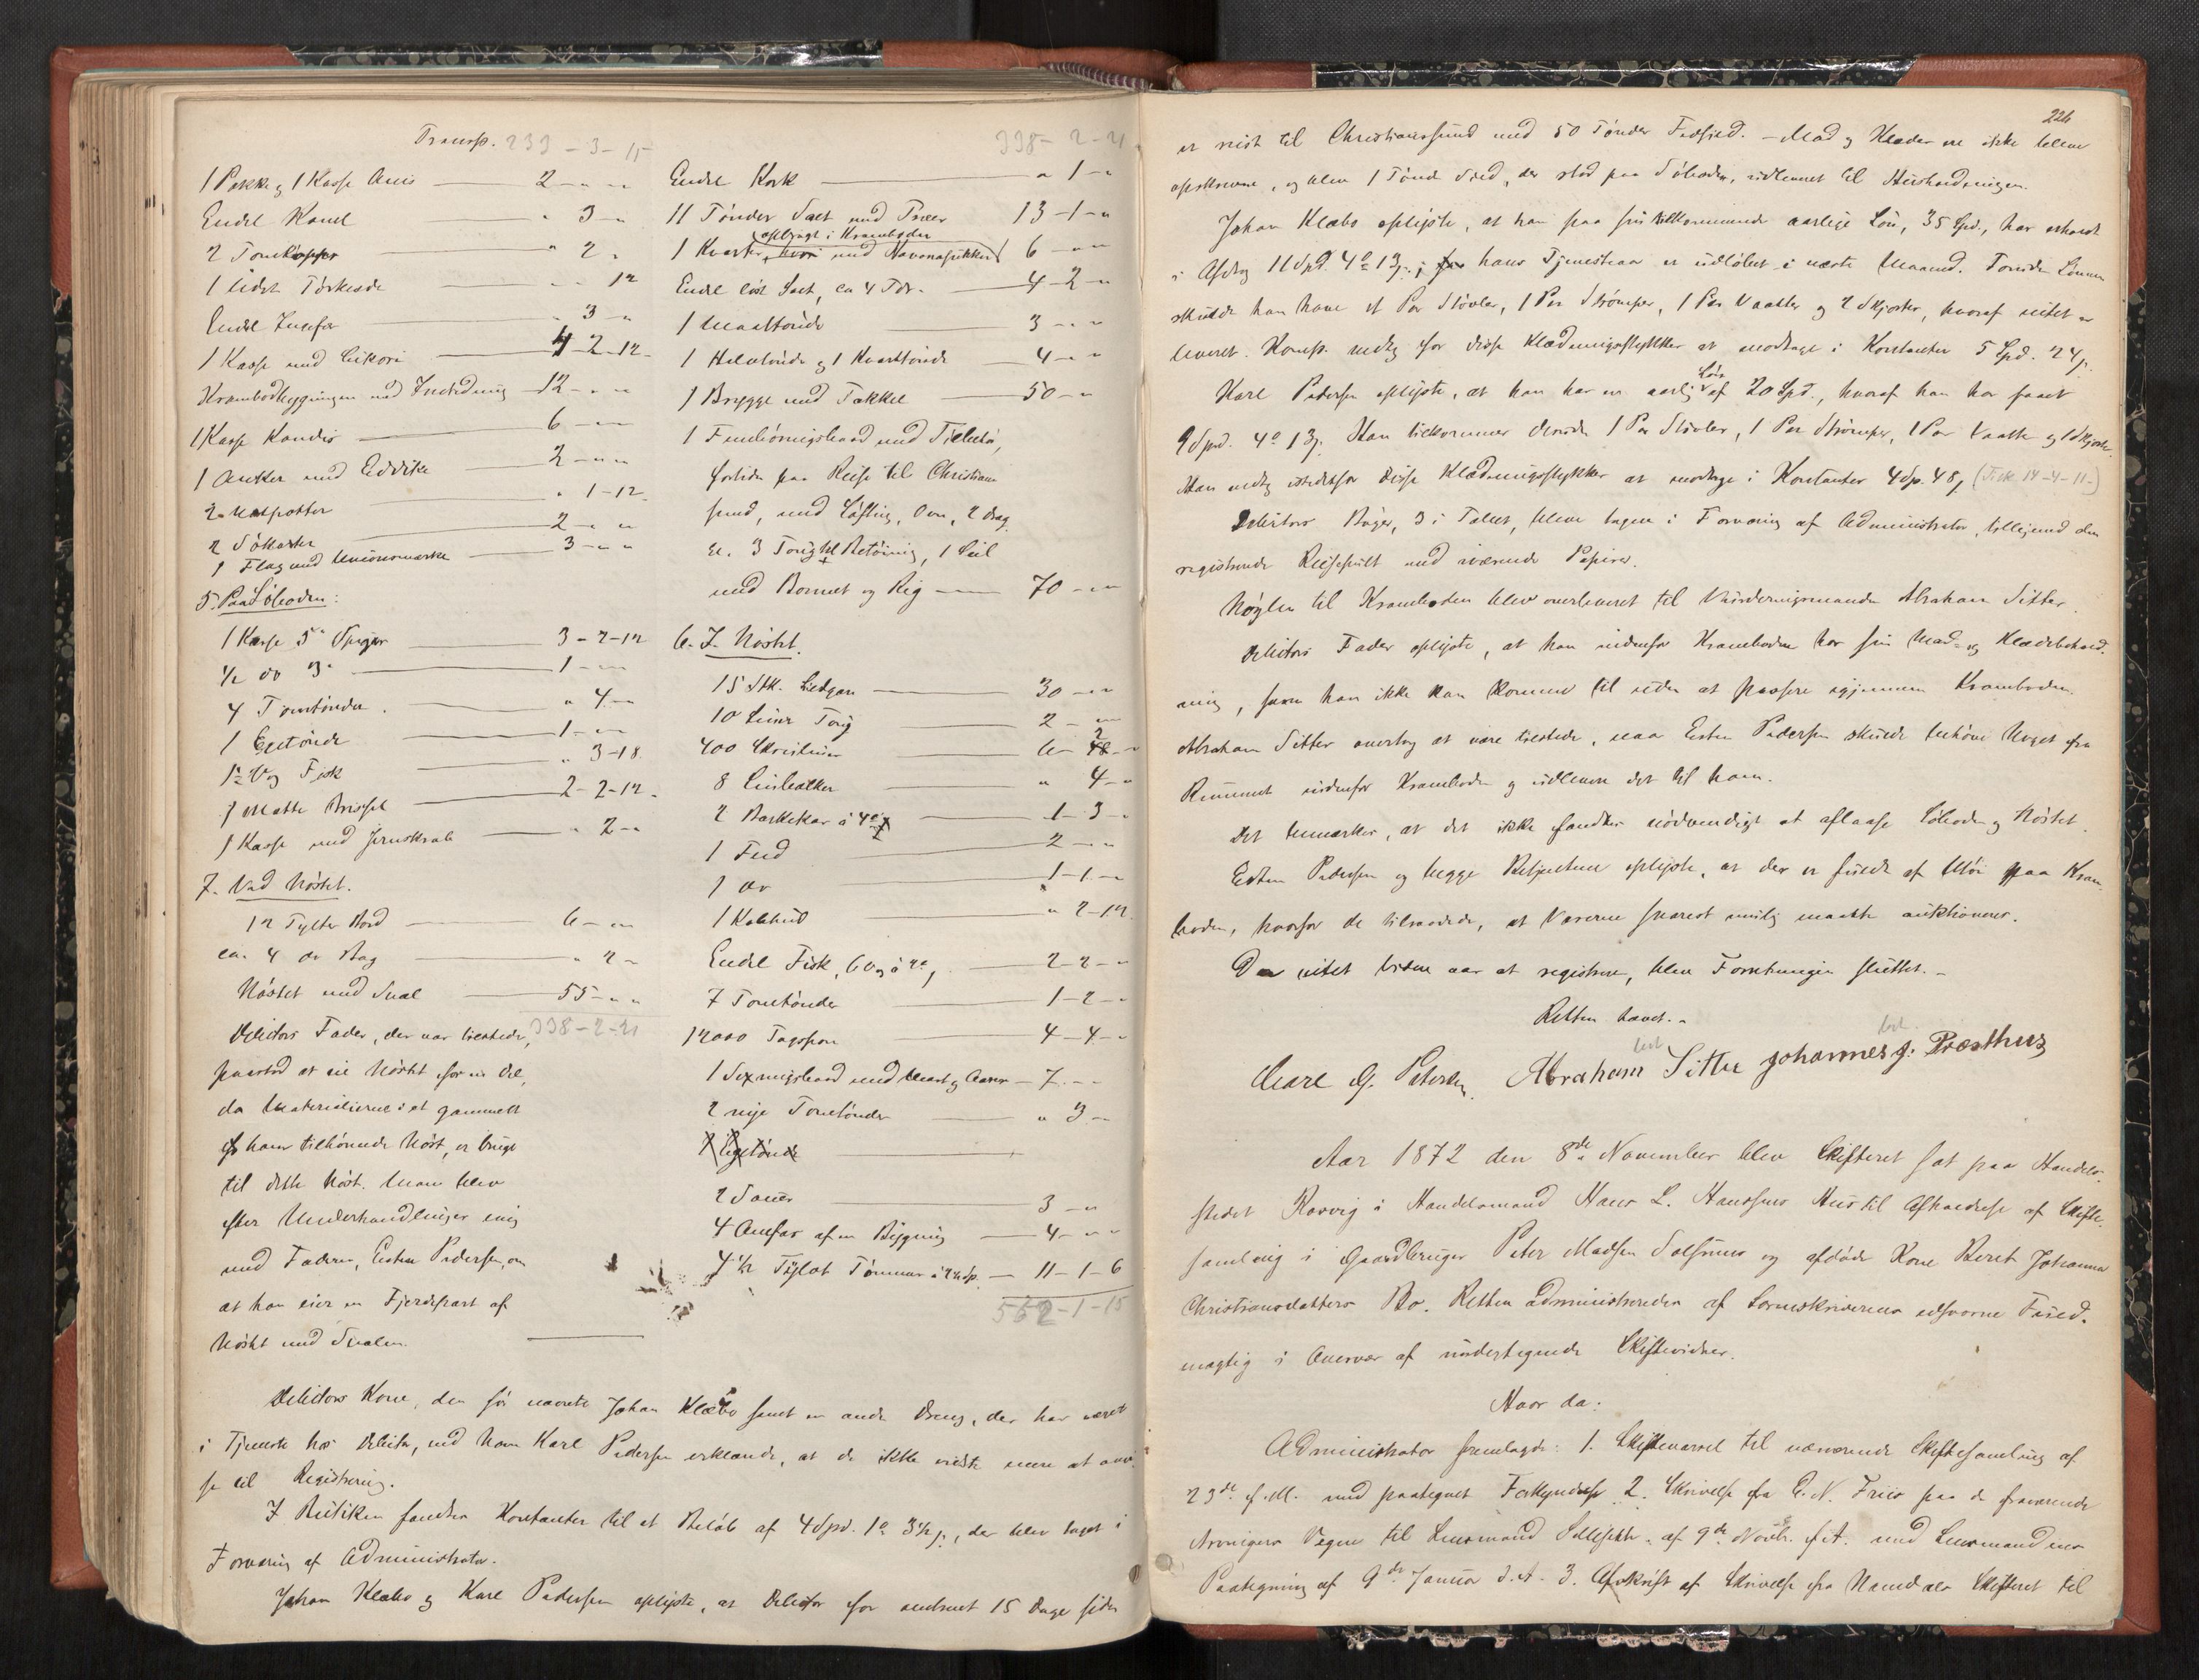 Transp. 233-3-15
1 Pakke og 1 Kasse Anis 2 - " - "
Endel Kanel " 3 - "
2 Tomkopper " 2 "
1 Kasse med Cikori 4 2-12
Krambodbygningen med Indredning 12 - " "
1 Kasse Kandis 6 - "
1 Anker med Eddike 2 - " "
" 1-12
2 - " "
1 Flag med Unionsmærke 3 - " "
5. Paa Søboden:
1 Kasse 5" Spiger 3-2-12
1/2 do 3" 1 - " "
4 Tomtønder " 4 - "
1 1 - " "
1 1/2 Vog Fisk " 3-18
1 Matte 2-2-12
1 Kasse med " 2 - "
7. Ved Nøstet.
12 Tylter Bord 6 - "
ca. 4 do Bag " 2 -
Nøstet med Sval 55 - " "
338-2-21
Debitors Fader, der var tilstede,
paastod at eie Nøstet for en Del,
da Materialierne i et gammelt
ham tilhørende Nøst, er brugt
til dette Nøst. Man blev
efter Underhandlinger enig
med Faderen, Esten Pedersen, om
at han eier en Fjerdepart af
Nøstet med Svalen.
338-2-21
Endel Kork " 1 - "
11 Tønder Salt med Træer 13-1-"
oplagt i Kramboden
1 6 - " "
Endel løst Salt, ca 4 Tdr. 4-2-"
1 Maaltønde 3 - " "
1 Halvtønde og 1 Kvarttønde 4 - " "
1 Brygge med Takkel 50 - "
1 Femböringsbaad med Tilbehør,
fortiden paa Reise til Christian-
sund, med Løfting, Ovn, 2 Drag
m. 3 Toug, 1 Seil
med Bonnet og Rig 70 - " "
6. I Nøstet.
15 Stk. Sildgarn 30 - " "
10 Liner Toug 2 - "
400 6 - 2
8 " 4 - "
2 Barkekar à 4 1-3-"
1 Fud 2 - " "
1 do 1-1-"
1 Kalvhud " 2-12
Endel Fisk, 6 Vog 2-2-"
7 Tomtønder 1-2-"
12000 Tagspon 4-4-"
1 Sexringsbaad med Mast og Aarer 7 - "
2 nye Tomtønder " 3 -
2 Sauer 3 - "
4 Omfar af en Bygning 4 - " "
4 1/2 Tylvt Tømmer 11-1-6
562-1-15
Debitors Kone, den før nævnte Johan Klæbo samt en anden Dreng, der har været
i Tjeneste hos Debitor, ved Navn Karl Pedersen erklærede, at de ikke vidste mere at anvi-
se til Registrering.
I Butiken fandtes Kontanter til et Beløb af 4 Spd. 1 3 1/2, der blev taget i
Forvaring af Administrator.
Johan Klæbo og Karl Pedersen oplyste, at Debitor for omtrent 15 Dage siden
226
er reist til Christianssund med 50 Tønder Fedsild. - Mad og Klæder ere ikke blevne
opskrevne, og blev 1 Tønde Sild, der stod paa Søboden, udleveret til Husholdningen.
Johan Klæbo oplyste, at han paa sin tilkommende aarlige Løn, 35 Spd., har erholdt
i Afdrag 11 Spd. 4 13; hans Tjenesteaar er udløbet i næste Maaned. Foruden Lønnen
skulde han have et Par Støvler, 1 Par Strømper, 1 Par Vaatter og 2 Skjorter, hvoraf intet er
leveret. Komp. vedtog for disse Klædningsstykker at modtage i Kontanter 5 Spd. 24.
Karl Pedersen oplyste, at han har en aarlig Løn af 20 Spd., hvoraf han har faaet
9 Spd. 4 13. Han tilkommer desuden 1 Par Støvler, 1 Par Strømper, 1 Par Vaatter og 1 Skjorte.
Han vedtog istedetfor disse Klædningsstykker at modtage i Kontanter 4 Sp. 48, (Tilk. 14-4-11-)
Debitors Bøger, 3 i Tallet, bleve tagne i Forvaring af Administrator, tilligemed den
registrerede Reisepult med værende Papirer.
Nøglen til Kramboden blev overleveret til Vurderingsmanden Abraham Sitter.
Debitors Fader oplyste, at han indenfor Kramboden har sin Mad- og Klædebehold-
ning, som han ikke kan komme til uden at passere igjennem Kramboden.
Abraham Sitter overtog at være tilstede, naar Esten Pedersen skulde behøve Noget fra
Rummet indenfor Kramboden og udlevere det til ham.
Det bemærkes, at det ikke fandtes nødvendigt at aflaase Søboden og Nøstet.
Esten Pedersen og begge Betjentene oplyste, at der er fuldt af Møl paa Kram-
boden, hvorfor de tilraadede, at Varerne snarest mulig maatte auktioneres.
Da intet videre var at registrere, blev Forretningen sluttet. -
Retten hævet. -
Carl G. Petersen. Abraham Sitter Johannes J. Præsthus
Aar 1872 den 8de November blev Skifteret sat paa Handels-
stedet Rørvig i Handelsmand Hans L. Hanssens Hus til Afholdelse af Skifte-
samling i Gaardbruger Peter Madsen Solsems og afdøde Kone Beret Johanna
Christiansdatters Bo. Retten administreredes af Sorenskriverens edsvorne Fuld-
mægtig i Overvær af undertegnede Skiftevidner.
Hvor da:
Administrator fremlagde: 1. Skiftevarsel til nærværende Skiftesamling af
23de f. M. med paategnet Forkyndelse 2. Skrivelse fra C. N. Friis paa de fraværende
Arvingers Vegne til Lensmand af 9de Novbr. f. A. med Lensmandens
Paategning af 9de Januar d. A. 3. Afskrift af Skrivelse fra Namdals Skifteret til